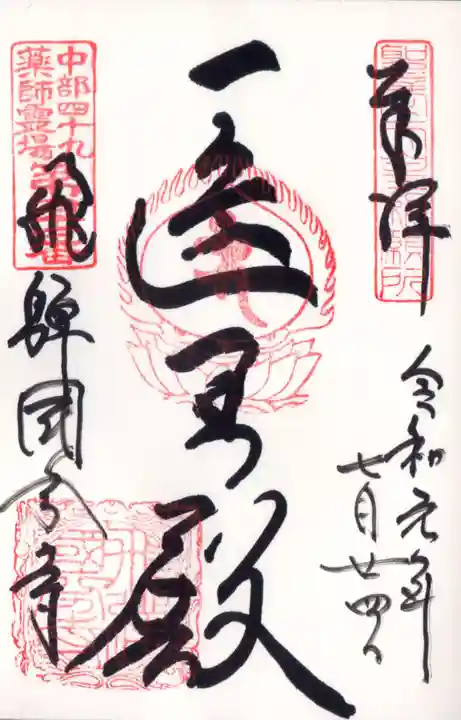 奉拝
令和元年
七月廿四日
医王殿
中部四十九
薬師霊場
飛騨国分寺